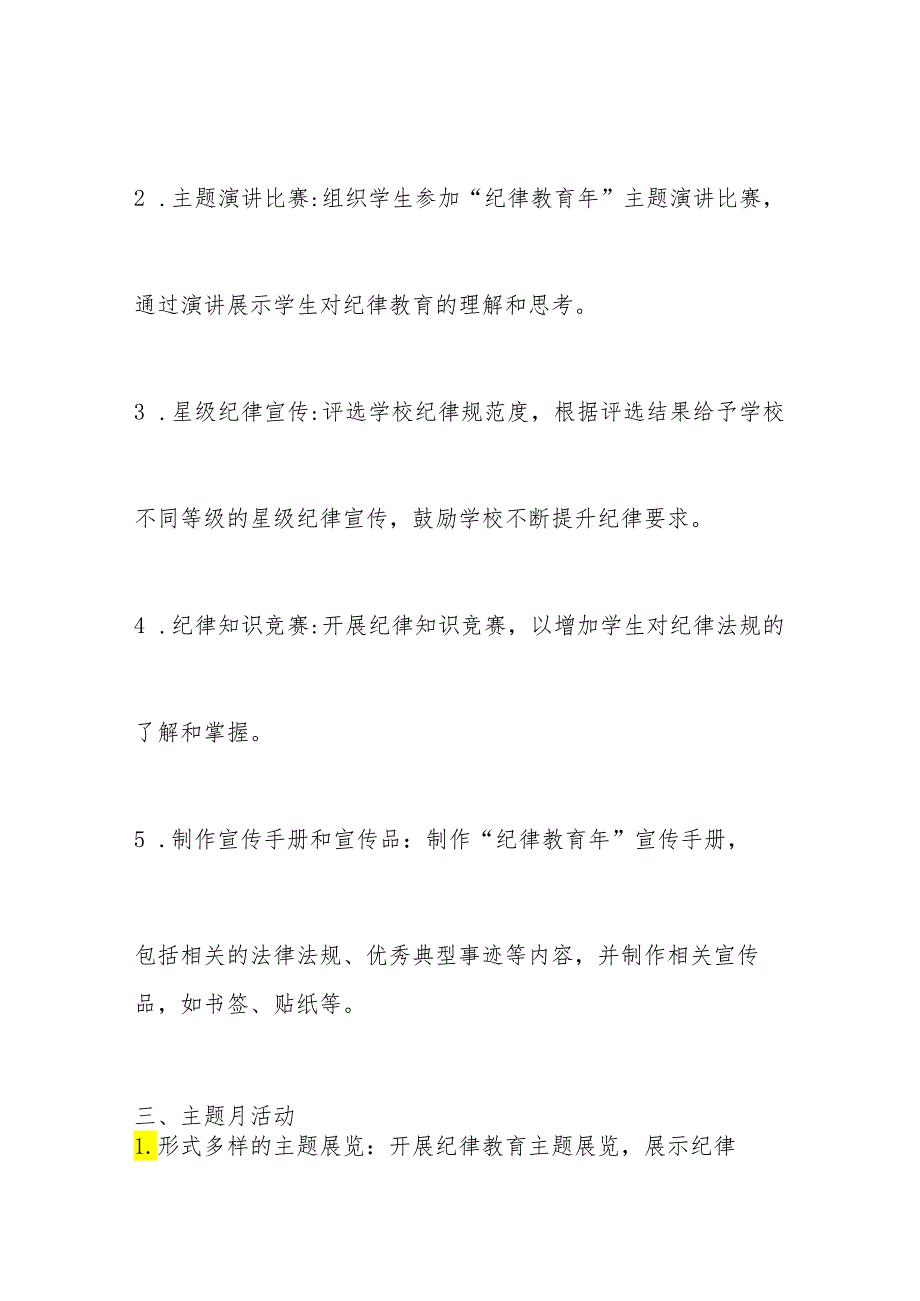 2 .主题演讲比赛:组织学生参加“纪律教育年”主题演讲比赛，
通过演讲展示学生对纪律教育的理解和思考。
3 .星级纪律宣传:评选学校纪律规范度，根据评选结果给予学校
不同等级的星级纪律宣传，鼓励学校不断提升纪律要求。
4 .纪律知识竞赛:开展纪律知识竞赛，以增加学生对纪律法规的
了解和掌握。
5 .制作宣传手册和宣传品：制作“纪律教育年”宣传手册，
包括相关的法律法规、优秀典型事迹等内容，并制作相关宣传
品，如书签、贴纸等。
三、主题月活动
1.形式多样的主题展览：开展纪律教育主题展览，展示纪律